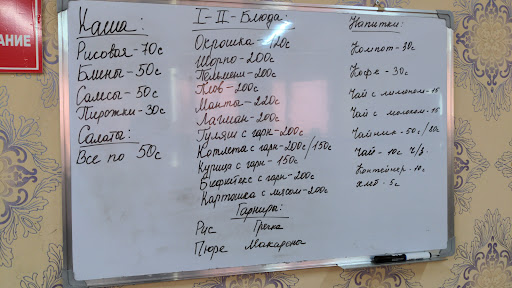 АНИЕ
Каша:
Рисовая - 70с
Блины - 50с
Самсы - 50с
Пирожки - 30с
Салаты:
Все по 50с
I - II - Блюда:
Окрошка - 120с
Шорпо - 200с
Пельмени - 200с
Плов - 200с
Манты - 220с
Лагман - 200с
Гуляш с гарн - 200с
Котлета с гарн - 200с/150с
Курица с гарн - 150с/
Бифштекс с гарн - 200с
Картошка с мясом - 200с
Гарниры:
Рис Гречка
Пюре Макарона
Напитки:
Компот - 30с
Кофе - 30с
Чай с лимоном - 15
Чай с молоком - 15
Чайник - 50с/20с
Чай - 10с ч/з
Контейнер - 10с
хлеб - 5с